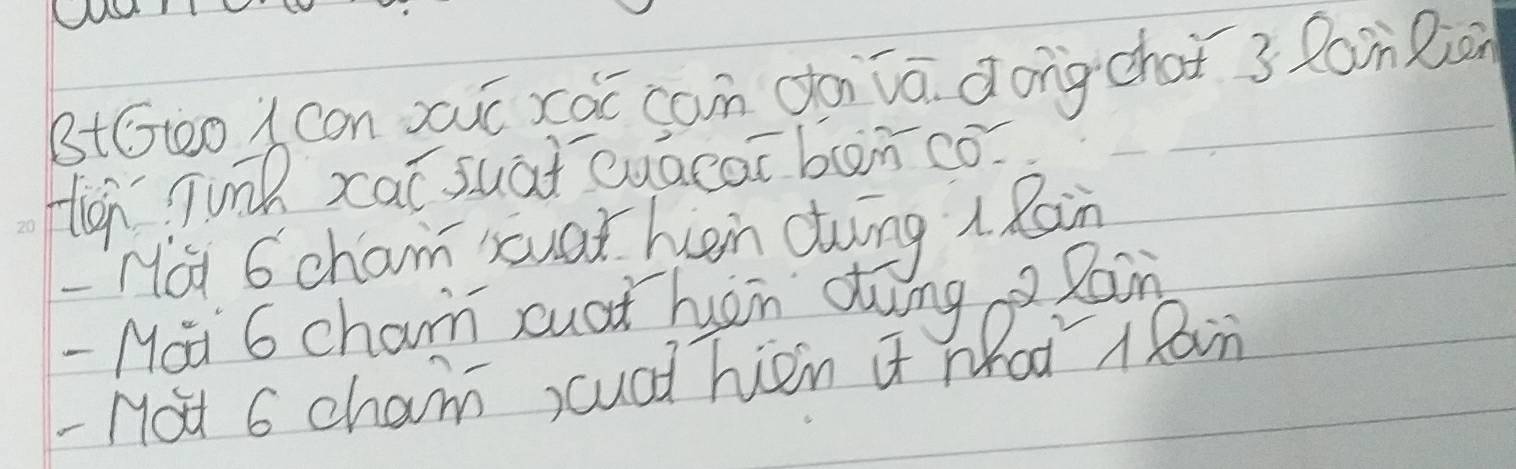 Bt Gieo 1 con xúc xắc cân đối và đồng chất 3 lần liên
tiếp. Tính xác suất của các biến cố.
- Mặt 6 chấm xuất hiện đúng 1 lần
- Mặt 6 chấm xuất hiện đúng 2 lần
- Mặt 6 chấm xuất hiện ít nhất 1 lần